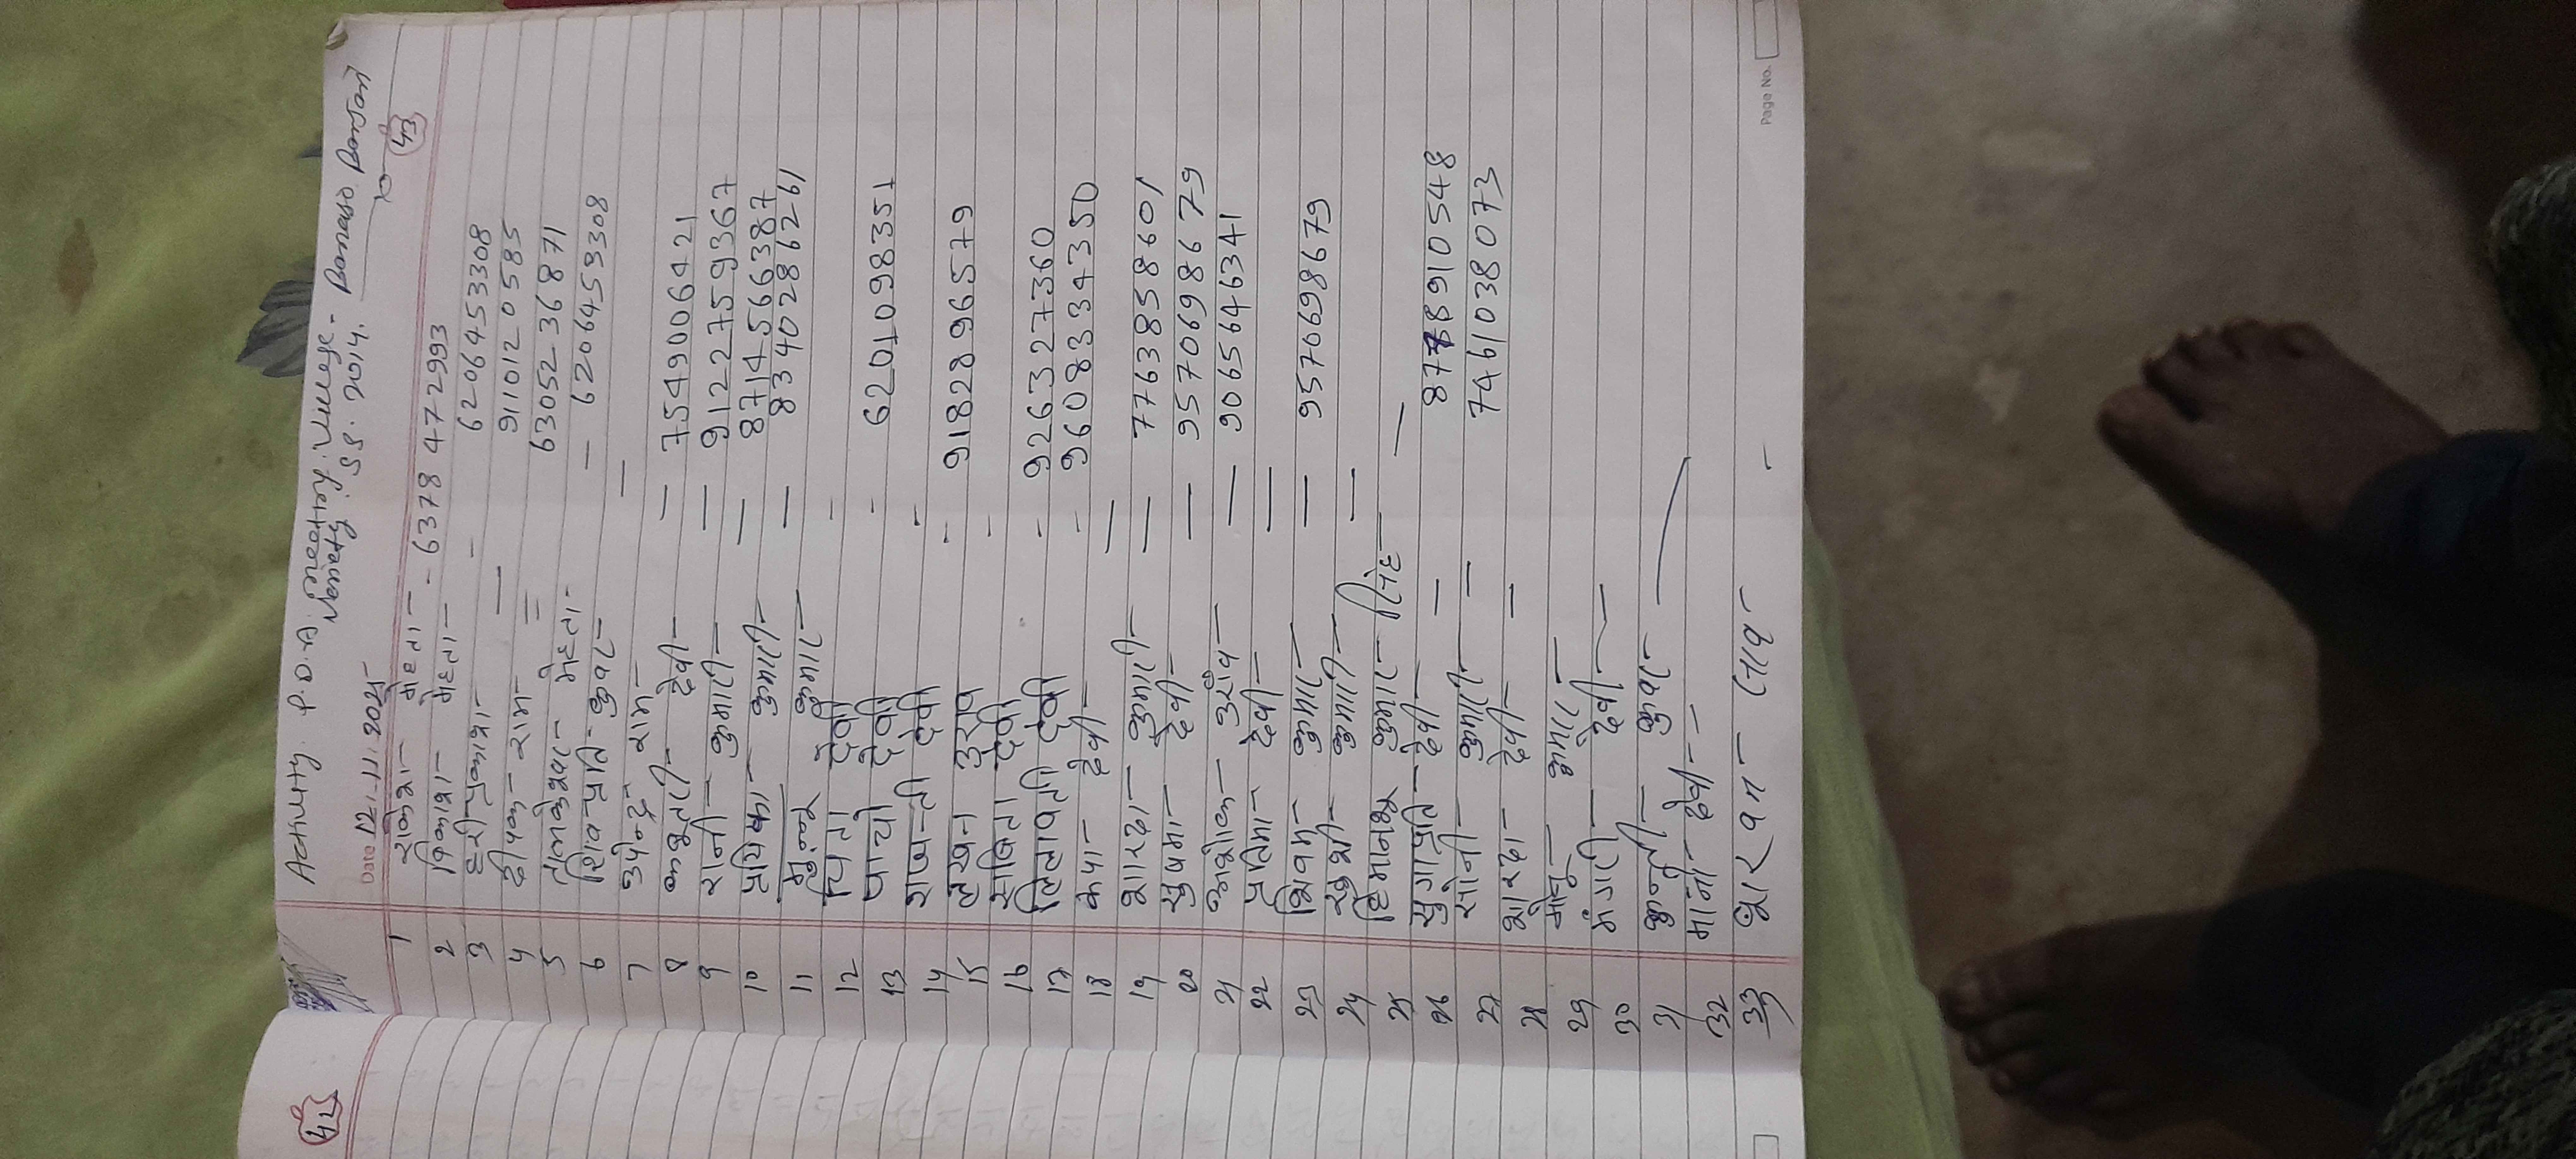 Activity. P.D.A. meeting. Village - Banaso Banjari
SS. 2014.
43
Date 12.11.2025
1 राकेश मेहता - 6378 472993
2 विकाश मेहता - 6206453308
3 हरी प्रकाश - 9110120585
4 दीपक राम = 6305236871
5 मेहता - 6206453308
6 शिव प्रति कुवर -
7 उपेन्द्र राम
8 देवी - 7549006421
9 रानी कुमारी - 9122759367
10 प्रियंका कुमारी - 8714566387
11 कुमार - 8340286261
12 देवी -
13 देवी - 6201098351
14 देवी -
15 लखन उराव - 9182896579
16 सबिता देवी -
17 देवी - 9263273360
18 देवी - 9608334350
19 शारदा कुमारी - 7763858601
20 सुषमा देवी - 9570698679
21 अशोक उराँव - 9065646341
22 प्रतिमा देवी
23 शिवम कुमार - 9570698679
24 खुशी कुमारी
25 कुमार सिंह -
26 देवी - 8778910548
27 सोनी कुमारी - 7461038073
28 शारदा देवी -
29 कुमार
30 मंगरी देवी
31 कुवर
32 देवी
33
42
Page No.